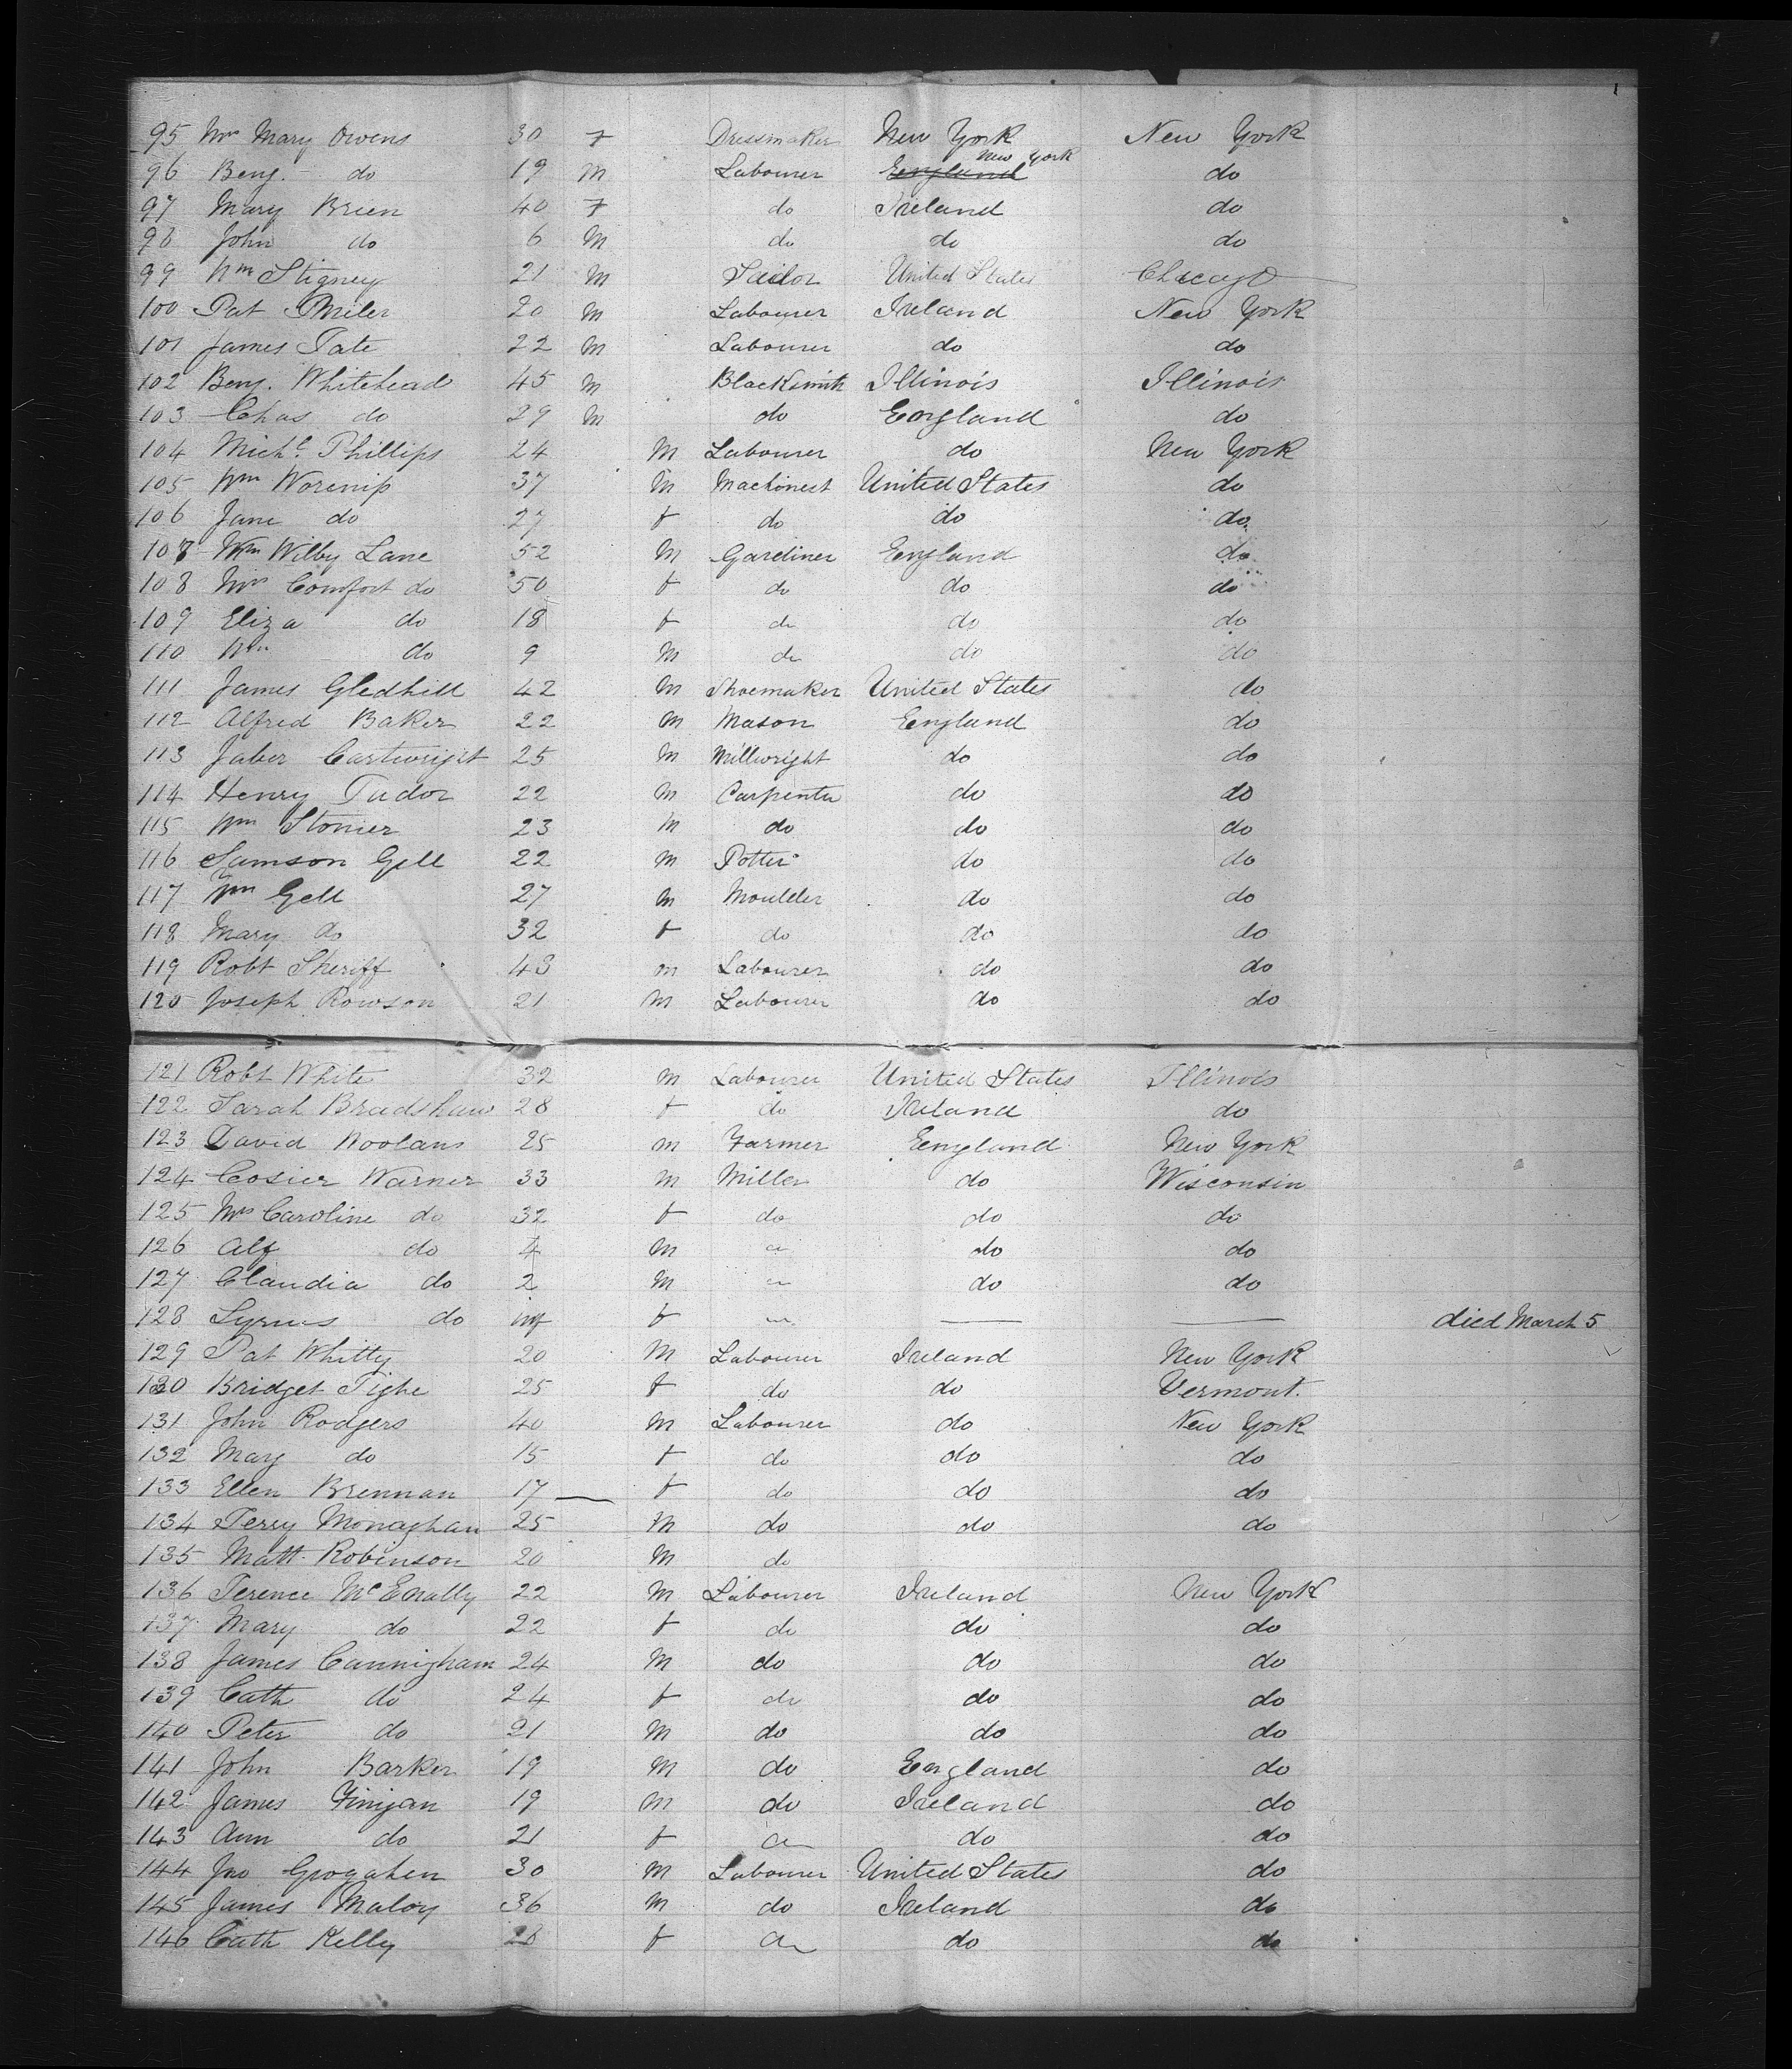 95 Mrs Mary Owens 30 F Dressmaker New York New York
96 Benj. do 19 M Labourer England New York do
97 Mary Brien 40 F do Ireland do
98 John do 6 M do do do
99 Wm Stigney 21 M Sailor United States Chicago
100 Pat Miler 20 M Labourer Ireland New York
101 James Tate 22 M Labourer do do
102 Benj. Whitehead 45 M Blacksmith Illinois Illinois
103 Chas do 29 M do England do
104 Michl Phillips 24 M Labourer do New York
105 Wm Worsnip 37 M Machinest United States do
106 Jane do 27 f do do do
107 Wm Wilby Lane 52 M Gardiner England do
108 Mrs Comfort do 50 f do do do
109 Eliza do 18 f do do do
110 Wm do 9 M do do do
111 James Gledhill 42 M Shoemaker United States do
112 Alfred Baker 22 M Mason England do
113 Jaber Cartwright 25 M Millwright do do
114 Henry Tudor 22 M Carpenter do do
115 Wm Stonier 23 M do do do
116 Samson Gell 22 M Potter do do
117 Wm Gell 27 M Moulder do do
118 Mary do 32 f do do do
119 Robt Sheriff 43 M Labourer do do
120 Joseph Rowson 21 M Labourer do do
121 Robt White 32 M Labourer United States Illinois
122 Sarah Bradshaw 28 f do Ireland do
123 David Woolans 25 M Farmer England New York
124 Cosier Warner 33 M Miller do Wisconsin
125 Mrs Caroline do 32 f do do do
126 Alf do 4 M do do
127 Claudia do 2 M do do
128 do inf f died March 5
129 Pat Whitty 20 M Labourer Ireland New York
130 Bridget Tighe 25 f do do Vermont.
131 John Rodgers 40 M Labourer do New York
132 Mary do 15 f do do do
133 Ellen Brennan 17 f do do do
134 Terry Monaghan 25 M do do do
135 Matt. Robinson 20 M do
136 Terence McEnally 22 M Labourer Ireland New York
137 Mary do 22 f do do do
138 James Cannigham 24 M do do do
139 Cath do 24 f do do do
140 Peter do 21 M do do do
141 John Barker 19 M do England do
142 James Finigan 19 M do Ireland do
143 Ann do 21 f do do do
144 Jno Grogahen 30 M Labourer United States do
145 James Maloy 36 M do Ireland do
146 Cath Kelly 28 f do do do